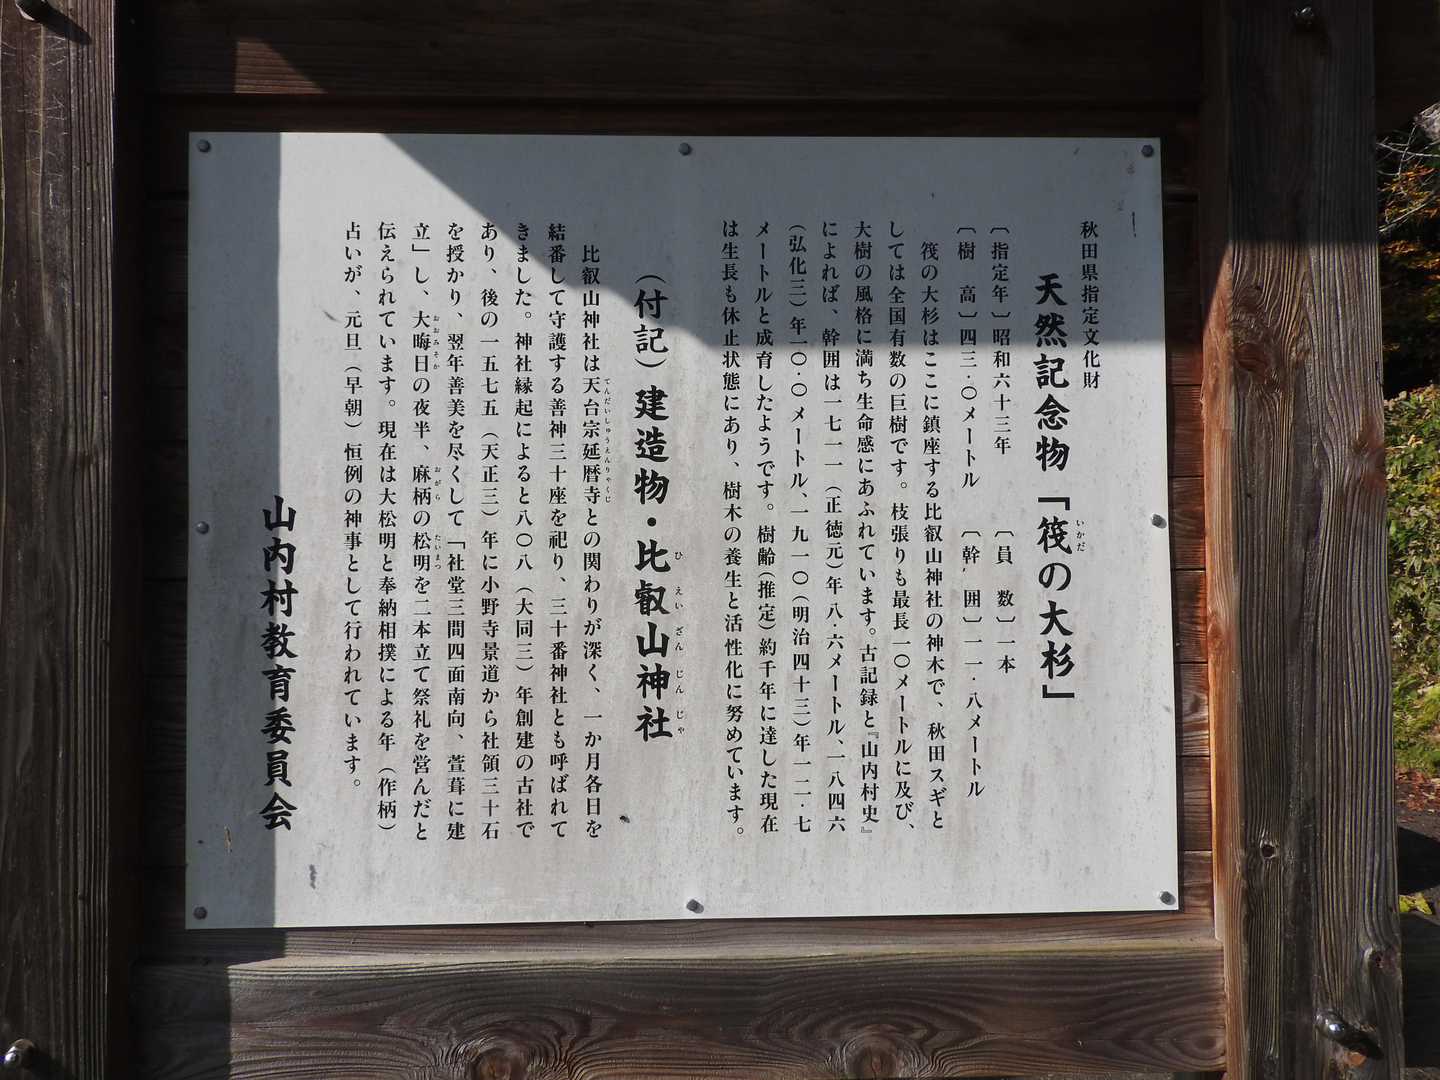 秋田県指定文化財
天然記念物「筏の大杉」
いかだ
〔指定年〕昭和六十三年　〔員　数〕一本
〔樹　高〕四三・〇メートル　〔幹　囲〕一一・八メートル
筏の大杉はここに鎮座する比叡山神社の神木で、秋田スギと
しては全国有数の巨樹です。枝張りも最長一〇メートルに及び、
大樹の風格に満ち生命感にあふれています。古記録と『山内村史』
によれば、幹囲は一七一一（正徳元）年八・六メートル、一八四六
（弘化三）年一〇・〇メートル、一九一〇（明治四十三）年一一・七
メートルと成育したようです。樹齢（推定）約千年に達した現在
は生長も休止状態にあり、樹木の養生と活性化に努めています。
（付記）建造物・比叡山神社
ひえいざんじんじゃ
比叡山神社は天台宗延暦寺との関わりが深く、一か月各日を
てんだいしゅうえんりゃくじ
結番して守護する善神三十座を祀り、三十番神社とも呼ばれて
きました。神社縁起によると八〇八（大同三）年創建の古社で
あり、後の一五七五（天正三）年に小野寺景道から社領三十石
を授かり、翌年善美を尽くして「社堂三間四面南向、萱葺に建
立」し、大晦日の夜半、麻柄の松明を二本立て祭礼を営んだと
おおみそか　おがら　たいまつ
伝えられています。現在は大松明と奉納相撲による年（作柄）
占いが、元旦（早朝）恒例の神事として行われています。
山内村教育委員会